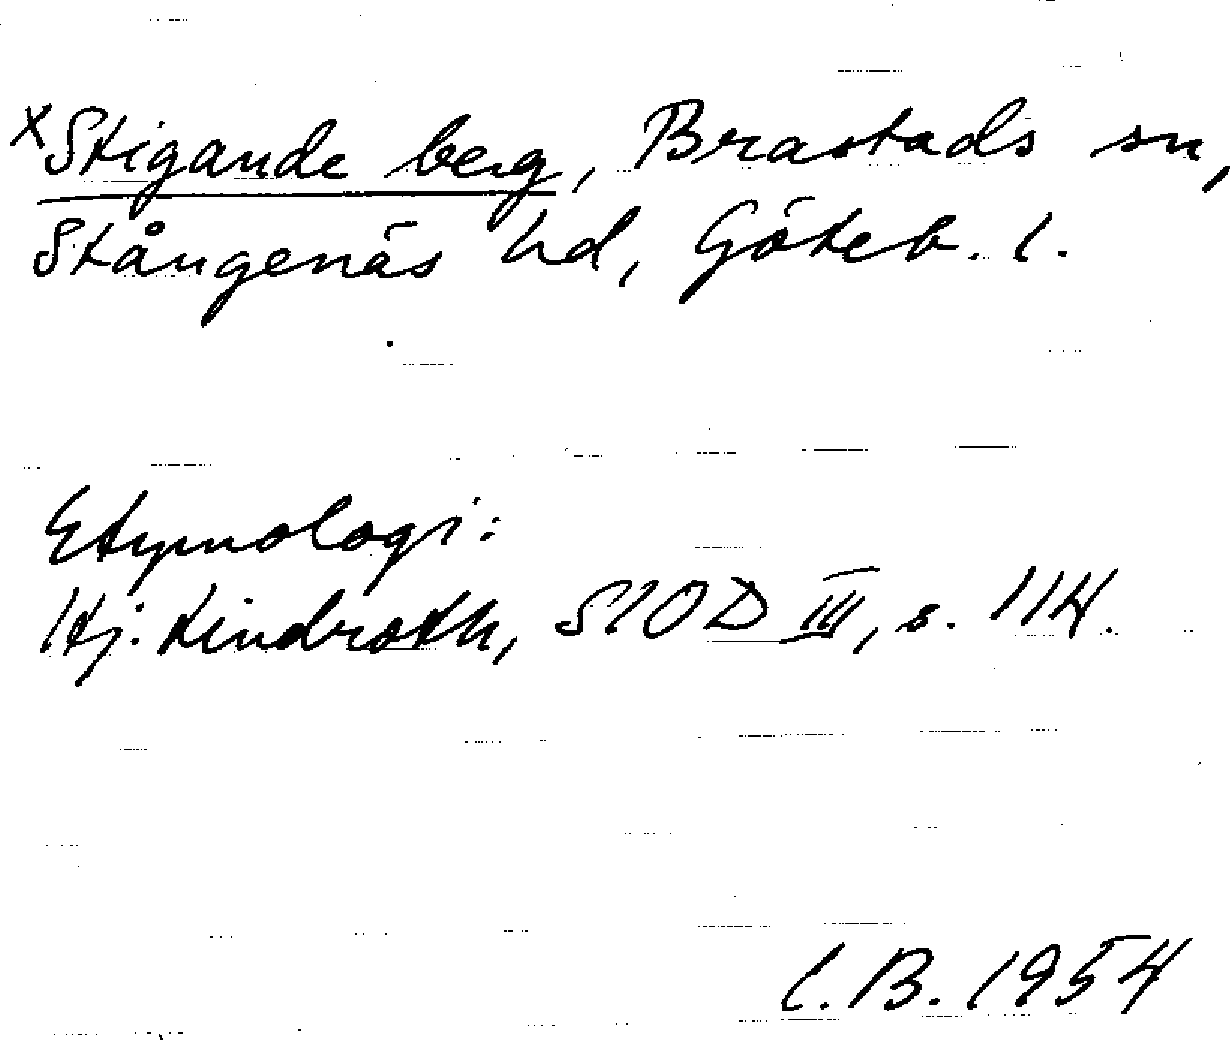 xStigande berg, Brastads sn,
Stångenäs hd, Göteb. l.
Etymologi:
Hj. Lindroth, SIOD III, s. 114.
C.B. 1954